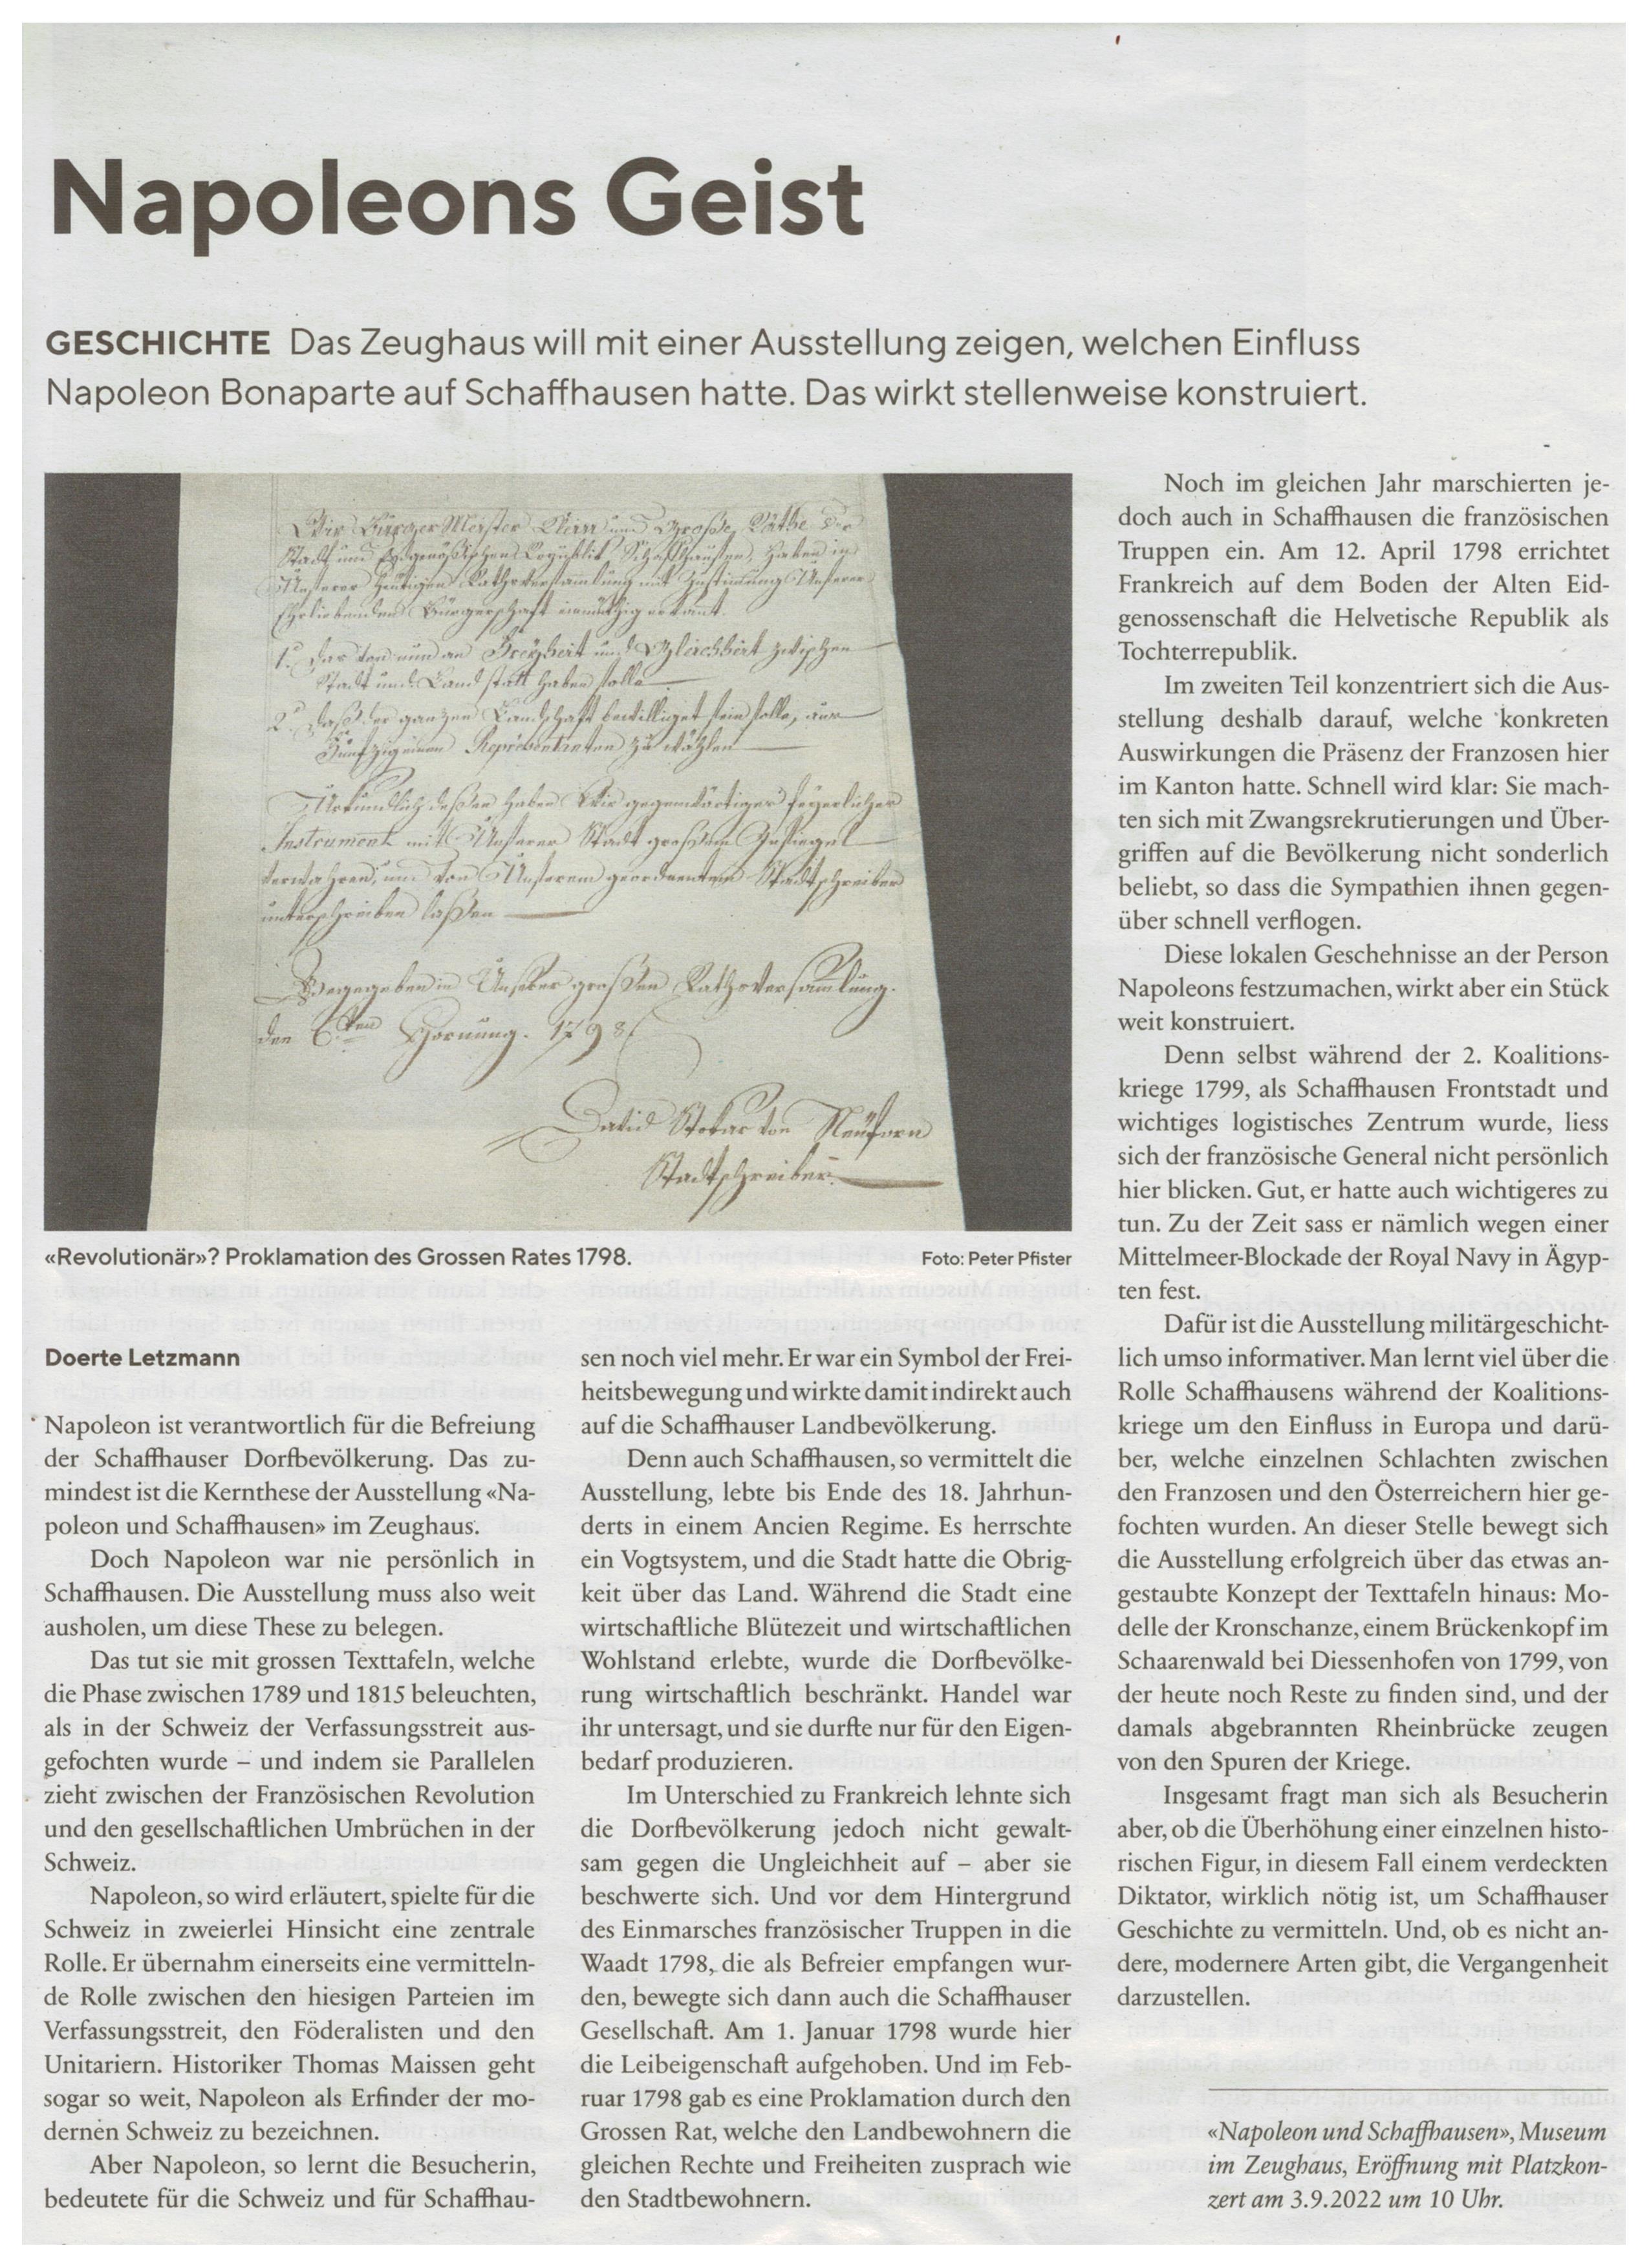 Napoleons Geist
GESCHICHTE Das Zeughaus will mit einer Ausstellung zeigen, welchen Einfluss
Napoleon Bonaparte auf Schaffhausen hatte. Das wirkt stellenweise konstruiert.
Wir Burger Meister Klein und Große Räthe der
Stadt und Eydgenößischen Republik Schaffhausen, haben in
Unserer heutigen Rathsversammlung mit Zustimmung Unserer
Ehrliebenden Bürgerschaft einmüthig erkannt.
1. das von nun an Freyheit und Gleichheit zwischen
Stadt und Land statt haben solle
2. daß der ganzen Landschaft bewilliget sein solle, aus
Repräsentanten zu wählen
Urkundlich deßen haben Wir gegenwärtiges feyerliches
Instrument mit Unserer Stadt großem Insiegel
verwahren, und von Unserem geordneten Stadtschreiber
unterschreiben laßen
Gegeben in Unserer großen Rathsversammlung.
den 6ten Hornung. 1798
David Stokar von Neuforn
Stadtschreiber.
«Revolutionär»? Proklamation des Grossen Rates 1798.
Foto: Peter Pfister
Doerte Letzmann
Napoleon ist verantwortlich für die Befreiung
der Schaffhauser Dorfbevölkerung. Das zu-
mindest ist die Kernthese der Ausstellung «Na-
poleon und Schaffhausen» im Zeughaus.
Doch Napoleon war nie persönlich in
Schaffhausen. Die Ausstellung muss also weit
ausholen, um diese These zu belegen.
Das tut sie mit grossen Texttafeln, welche
die Phase zwischen 1789 und 1815 beleuchten,
als in der Schweiz der Verfassungsstreit aus-
gefochten wurde – und indem sie Parallelen
zieht zwischen der Französischen Revolution
und den gesellschaftlichen Umbrüchen in der
Schweiz.
Napoleon, so wird erläutert, spielte für die
Schweiz in zweierlei Hinsicht eine zentrale
Rolle. Er übernahm einerseits eine vermitteln-
de Rolle zwischen den hiesigen Parteien im
Verfassungsstreit, den Föderalisten und den
Unitariern. Historiker Thomas Maissen geht
sogar so weit, Napoleon als Erfinder der mo-
dernen Schweiz zu bezeichnen.
Aber Napoleon, so lernt die Besucherin,
bedeutete für die Schweiz und für Schaffhau-
sen noch viel mehr. Er war ein Symbol der Frei-
heitsbewegung und wirkte damit indirekt auch
auf die Schaffhauser Landbevölkerung.
Denn auch Schaffhausen, so vermittelt die
Ausstellung, lebte bis Ende des 18. Jahrhun-
derts in einem Ancien Regime. Es herrschte
ein Vogtsystem, und die Stadt hatte die Obrig-
keit über das Land. Während die Stadt eine
wirtschaftliche Blütezeit und wirtschaftlichen
Wohlstand erlebte, wurde die Dorfbevölke-
rung wirtschaftlich beschränkt. Handel war
ihr untersagt, und sie durfte nur für den Eigen-
bedarf produzieren.
Im Unterschied zu Frankreich lehnte sich
die Dorfbevölkerung jedoch nicht gewalt-
sam gegen die Ungleichheit auf – aber sie
beschwerte sich. Und vor dem Hintergrund
des Einmarsches französischer Truppen in die
Waadt 1798, die als Befreier empfangen wur-
den, bewegte sich dann auch die Schaffhauser
Gesellschaft. Am 1. Januar 1798 wurde hier
die Leibeigenschaft aufgehoben. Und im Feb-
ruar 1798 gab es eine Proklamation durch den
Grossen Rat, welche den Landbewohnern die
gleichen Rechte und Freiheiten zusprach wie
den Stadtbewohnern.
Noch im gleichen Jahr marschierten je-
doch auch in Schaffhausen die französischen
Truppen ein. Am 12. April 1798 errichtet
Frankreich auf dem Boden der Alten Eid-
genossenschaft die Helvetische Republik als
Tochterrepublik.
Im zweiten Teil konzentriert sich die Aus-
stellung deshalb darauf, welche konkreten
Auswirkungen die Präsenz der Franzosen hier
im Kanton hatte. Schnell wird klar: Sie mach-
ten sich mit Zwangsrekrutierungen und Über-
griffen auf die Bevölkerung nicht sonderlich
beliebt, so dass die Sympathien ihnen gegen-
über schnell verflogen.
Diese lokalen Geschehnisse an der Person
Napoleons festzumachen, wirkt aber ein Stück
weit konstruiert.
Denn selbst während der 2. Koalitions-
kriege 1799, als Schaffhausen Frontstadt und
wichtiges logistisches Zentrum wurde, liess
sich der französische General nicht persönlich
hier blicken. Gut, er hatte auch wichtigeres zu
tun. Zu der Zeit sass er nämlich wegen einer
Mittelmeer-Blockade der Royal Navy in Ägyp-
ten fest.
Dafür ist die Ausstellung militärgeschicht-
lich umso informativer. Man lernt viel über die
Rolle Schaffhausens während der Koalitions-
kriege um den Einfluss in Europa und darü-
ber, welche einzelnen Schlachten zwischen
den Franzosen und den Österreichern hier ge-
fochten wurden. An dieser Stelle bewegt sich
die Ausstellung erfolgreich über das etwas an-
gestaubte Konzept der Texttafeln hinaus: Mo-
delle der Kronschanze, einem Brückenkopf im
Schaarenwald bei Diessenhofen von 1799, von
der heute noch Reste zu finden sind, und der
damals abgebrannten Rheinbrücke zeugen
von den Spuren der Kriege.
Insgesamt fragt man sich als Besucherin
aber, ob die Überhöhung einer einzelnen histo-
rischen Figur, in diesem Fall einem verdeckten
Diktator, wirklich nötig ist, um Schaffhauser
Geschichte zu vermitteln. Und, ob es nicht an-
dere, modernere Arten gibt, die Vergangenheit
darzustellen.
«Napoleon und Schaffhausen», Museum
im Zeughaus, Eröffnung mit Platzkon-
zert am 3.9.2022 um 10 Uhr.